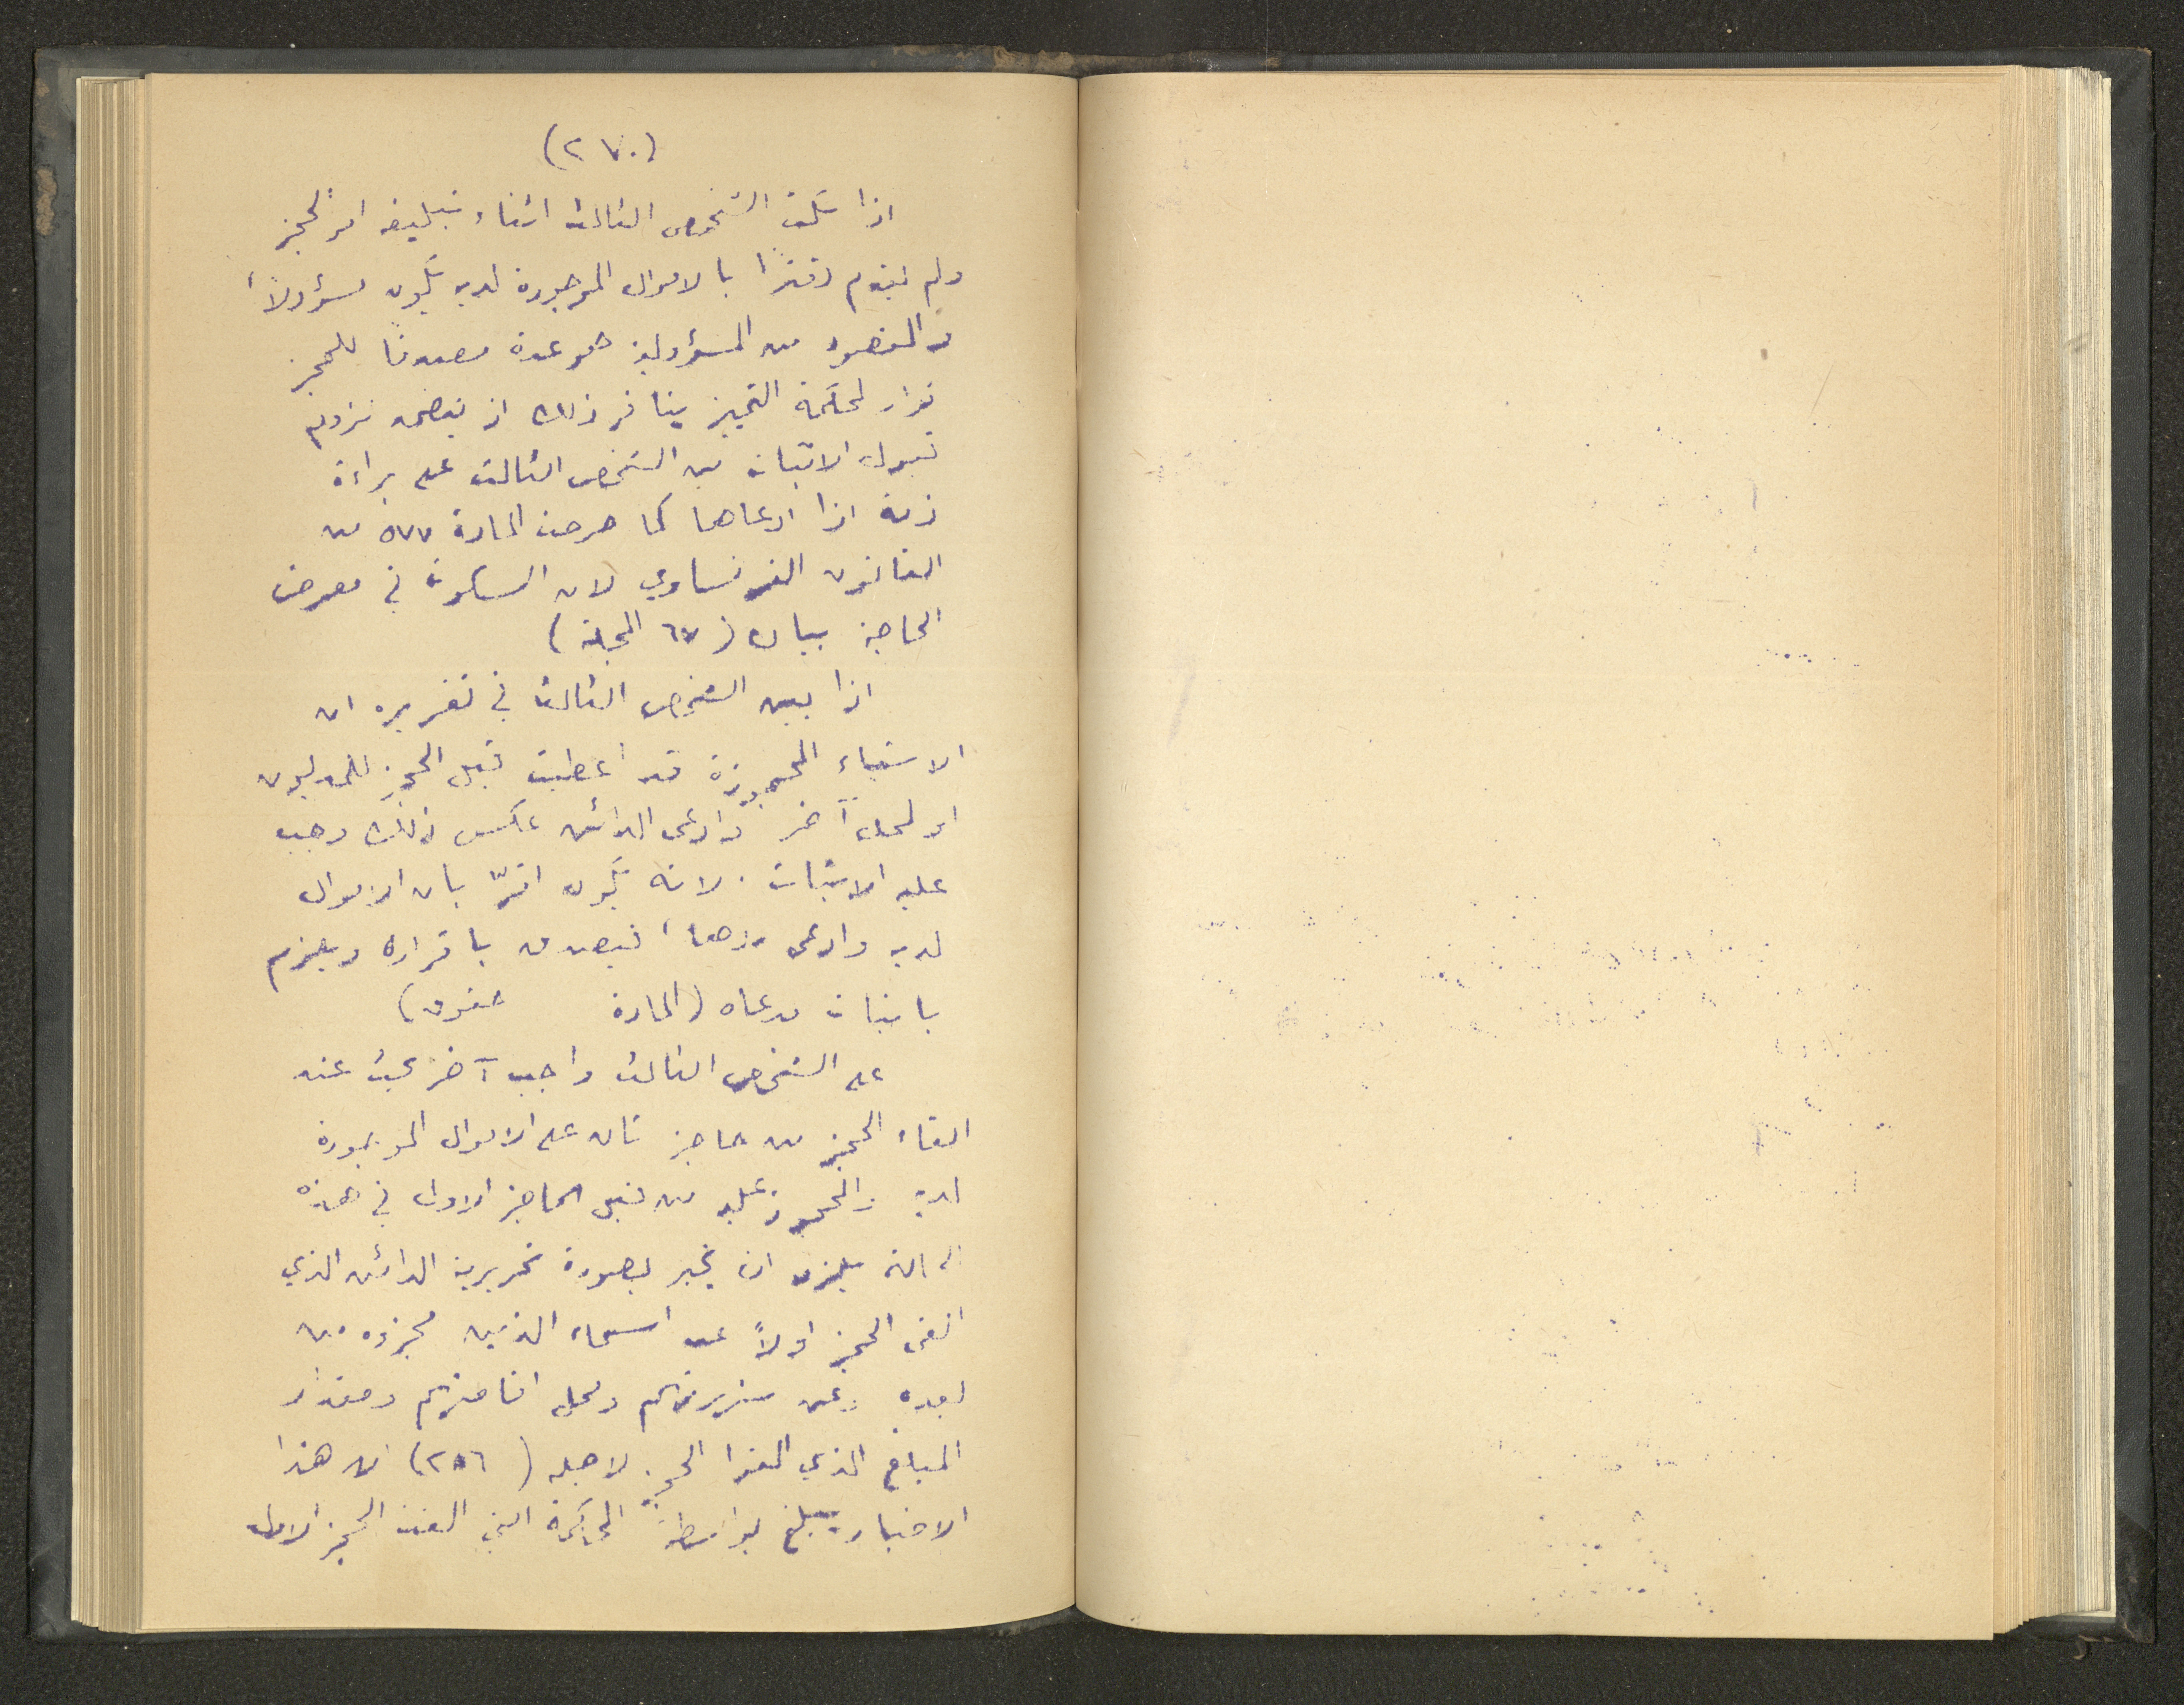 (٢٧٠)
اذا سكت الشخص الثالث اثناء تبليغه امر الحجز
ولم يقدم دفترًا بالاموال الموجودة لديه يكون مسؤولاً،
والمقصود من المسؤولية هو عده مصدقا للحجز
قرار لمحكمة التمييز ذلك اذ لزوم
قبول الاثبات من الشخص الثالث على براءة
ذمته اذا ادعاها كما صرحت المادة ٥٧٧ من
القانون الفرنساوي لان السكوت في معرض
الحاجة بيان (٦٧ المجلة)
اذا بين الشخص الثالث في تقريره ان
الاشياء المحجوزة قد اعطيت قبل الحجز للمديون
او لمحل آخر وادعى الدائن عكس ذلك وجب
عليه الاثبات . لانه يكون اقرّ بان الاموال
لديه وادعى ردها، فيصدق باقراره ويلزم
باثبات مدعاه (المادة حقوق)
على الشخص الثالث واجب آخر يجب عند
القاء الحجز من حاجز ثان على الاموال الموجودة
لديه والمحجوز عليها من قبل الحاجز الاول في هذه
الحالة يلزم ان يخبر بصورة تحريرية الدائن الذي
القى الحجز اولاً عن اسماء الذين حجزوه من
بعده وعن شهرتهم ومحل اقامتهم ومقدار
المبلغ الذي القوا الحجز لاجله (٢٥٦) ان هذا
الاخبار يبلغ بواسطة المحكمة التي القت الحجز الاول